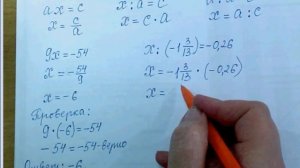 ax = c
x = c/a
x = c · a
x = a : c
9x = -54
x = -54/9
x = -6
Проверка:
9 · (-6) = -54
-54 = -54 - верно
Ответ: -6
x : (-1 3/13) = -0,26
x = -1 3/13 · (-0,26)
x =